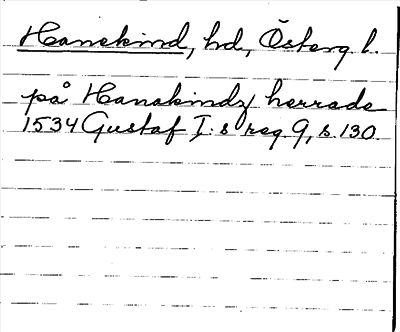 Hanekind, hd, Österg. l.
på Hanakindz herrade
1534 Gustaf I:s reg. 9, s. 130.